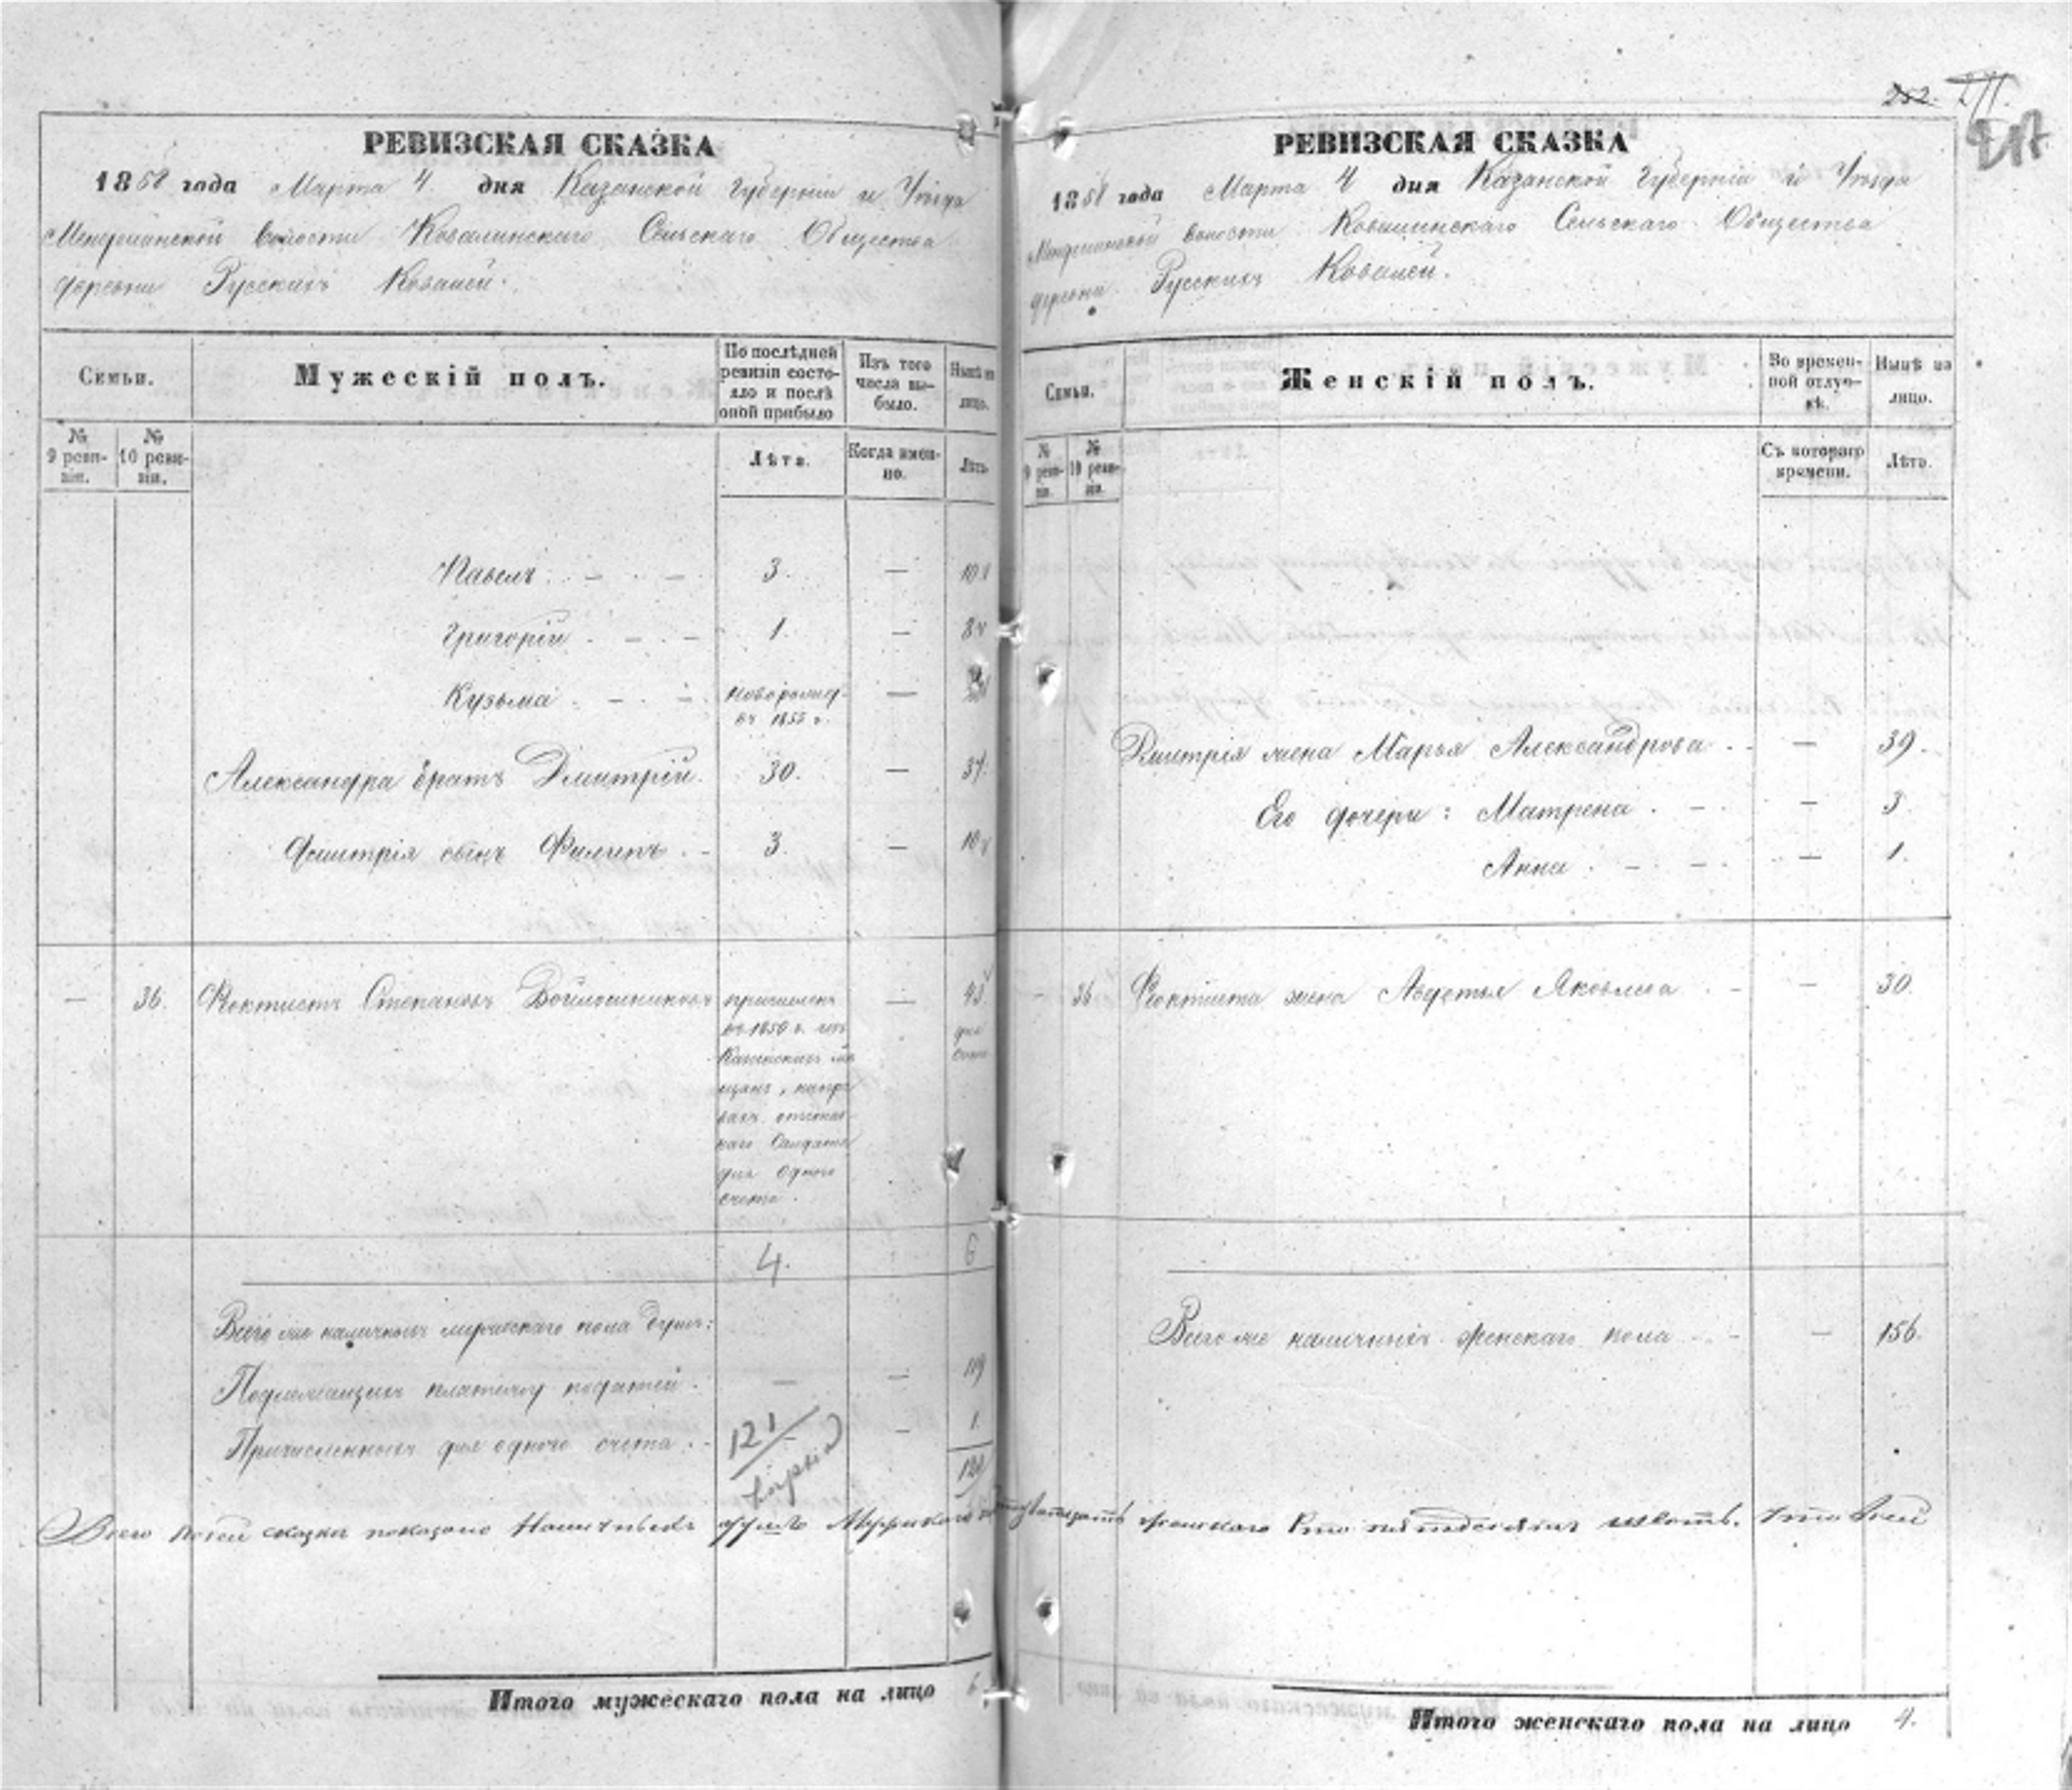 252.
217
РЕВИЗСКАЯ СКАЗКА
1858 года Марта 4 дня Казанской Губерніи и Уѣзда
волости Ковалинскаго Сельскаго Общества
деревни Русскихъ Ковалей.
Семьи.
Мужескій полъ.
По послѣдней ревизіи состо-
яло и послѣ
оной прибыло
Изъ того
числа вы-
было.
Нынѣ на
лицо.
№
9 реви-
зіи.
№
10 реви-
зіи.
Лѣта.
Когда имен-
но.
Лѣта
Павелъ - - 3. — 10
Григорій - - 1. — 8
Кузьма - - новорожд-
въ 1855 г. —
Александра братъ Дмитрій. 30. — 37.
Дмитрія сынъ Филипъ - 3. — 10
— 36. Феоктистъ Степановъ Войлошниковъ
причисленъ
въ 1850 г. изъ
Казанскихъ мѣ
щанъ, на пра-
вахъ отстав-
наго Солдата
для одного
счета.
— 43
для
счета
4. 6
Всего же наличныхъ мужескаго пола душъ:
Подлежащихъ платежу податей. — — 119
Причисленныхъ для одного счета. - — 1
121
120
Всего по сей сказкѣ показано Наличныхъ душъ Мужескаго
Итого мужескаго пола на лицо 6.
РЕВИЗСКАЯ СКАЗКА
1858 года Марта 4 дня Казанской Губерніи и Уѣзда
волости Ковалинскаго Сельскаго Общества
деревни Русскихъ Ковалей.
Семьи.
Женскій полъ.
Во времен-
ной отлуч-
кѣ.
Нынѣ на
лицо.
№
9 реви-
зіи.
№
10 реви-
зіи.
Съ котораго
времени.
Лѣта.
Дмитрія жена Марья Александрова - — 39.
Его дочери: Матрена - — 3
Анна - - — 1.
- 36 Феоктиста жена Авдотья Яковлева - — 30.
Всего же наличныхъ женскаго пола - — 156.
двадцать женскаго Сто пятьдесятъ шесть. Что Всей
Итого женскаго пола на лицо 4.